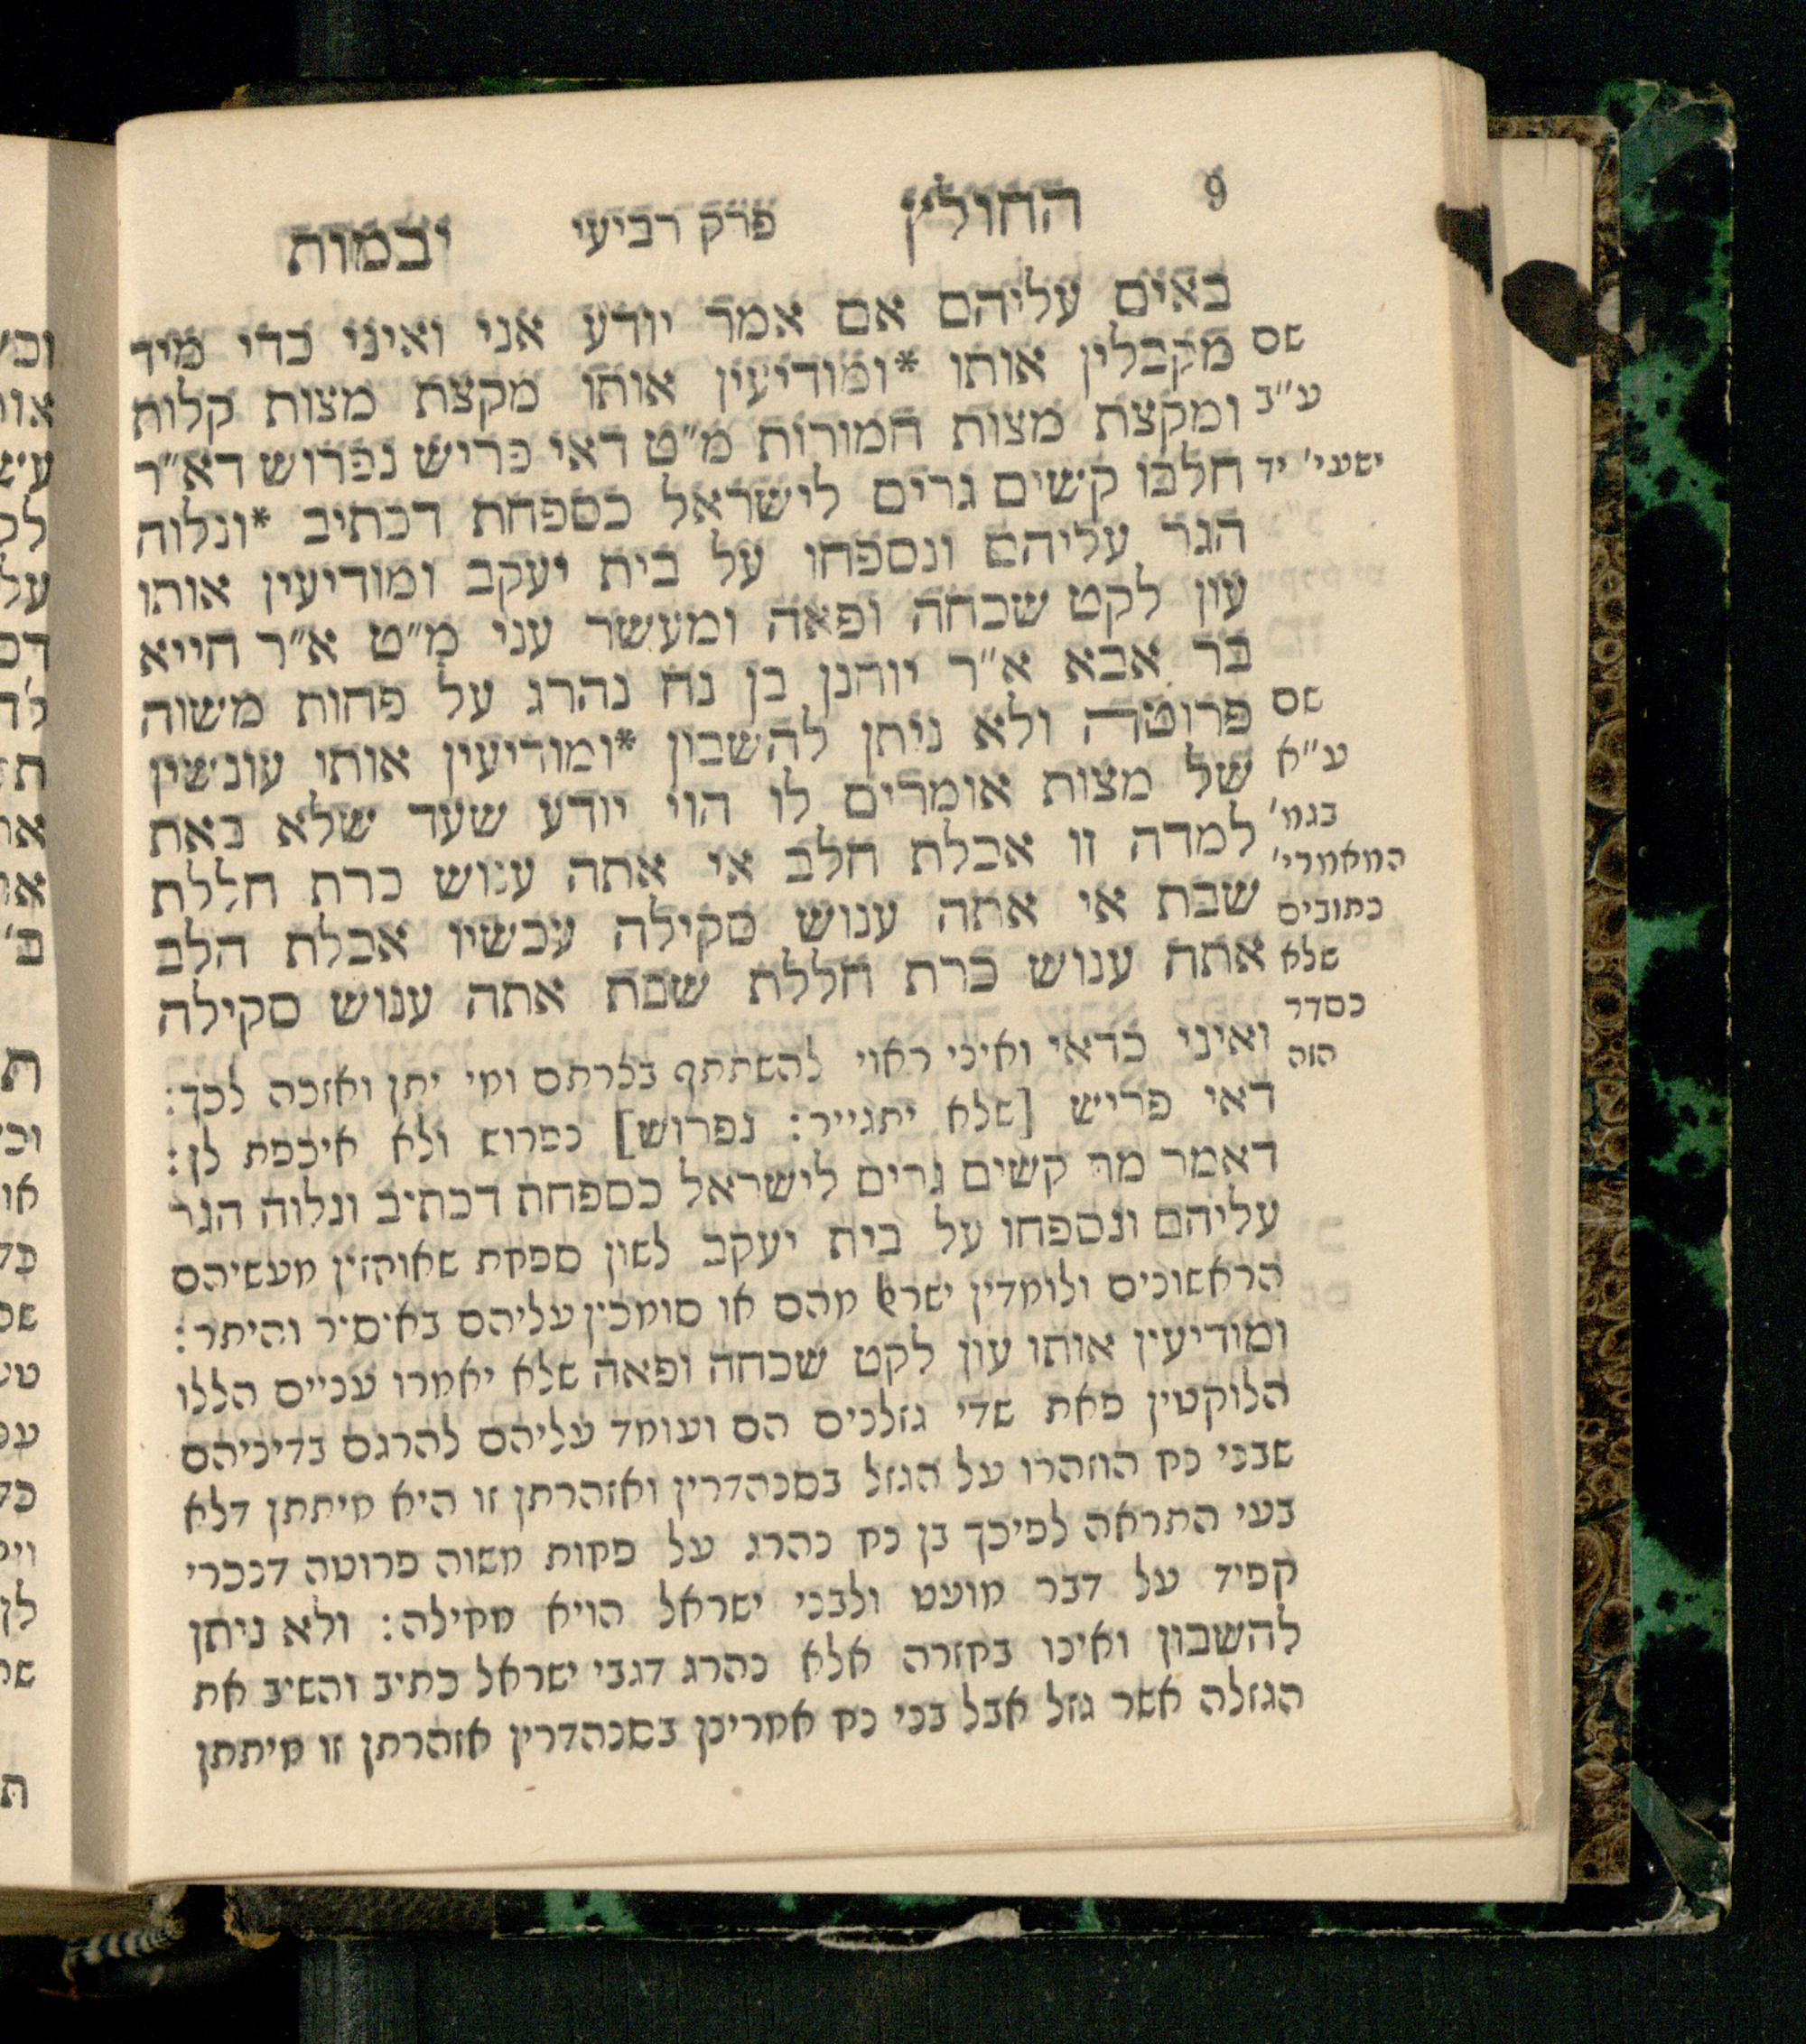 9 החולץ פרק רביעי יבמות
באים עליהם אם אמר יודע אני ואיני כדי מיד
שם מקבלין אותו *ומודיעין אותו מקצת מצות קלות
ע״ב ומקצת מצות חמורות מ״ט דאי פריש נפרוש דא״ר
ישעי׳ יד חלבו קשים גרים לישראל כספחת דכתיב *ונלוה
הגר עליהם ונספחו על בית יעקב ומודיעין אותו
עון לקט שכחה ופאה ומעשר עני מ״ט א״ר חייא
בר אבא א״ר יוחנן בן נח נהרג על פחות משוה
שם פרוטה ולא ניתן להשבון *ומודיעין אותו עונשין
ע״א של מצות אומרים לו הוי יודע שעד שלא באת
בגמ׳ למדה זו אכלת חלב אי אתה ענוש כרת חללת
המאמרי׳
כתובים שבת אי אתה ענוש סקילה עכשיו אכלת חלב
שלא אתה ענוש כרת חללת שבת אתה ענוש סקילה
כסדר
הזה ואיני כדאי ואיני ראוי להשתתף בצרתם ומי יתן ואזכה לכך:
דאי פריש [שלא יתגייר: נפרוש] נפרוש ולא איכפת לן:
דאמר מר קשים גרים לישראל כספחת דכתיב ונלוה הגר
עליהם ונספחו על בית יעקב לשון ספחת שאוחזין מעשיהם
הראשונים ולומדין ישראל מהם או סומכין עליהם באיסיר והיתר:
ומודיעין אותו עון לקט שכחה ופאה שלא יאמרו עניים הללו
הלוקטין פאת שדי גזלנים הם ועומד עליהם להרגם בדיניהם
שבני נח הוזהרו על הגזל בסנהדרין ואזהרתן זו היא מיתתן דלא
בעי התראה לפיכך בן נח נהרג על פחות משוה פרוטה דנכרי
קפיד על דבר מועט ולבני ישראל הויא מחילה: ולא ניתן
להשבון ואינו בחזרה אלא נהרג דגבי ישראל כתיב והשיב את
הגזלה אשר גזל אבל בני נח אמרינן בסנהדרין אזהרתן זו מיתתן